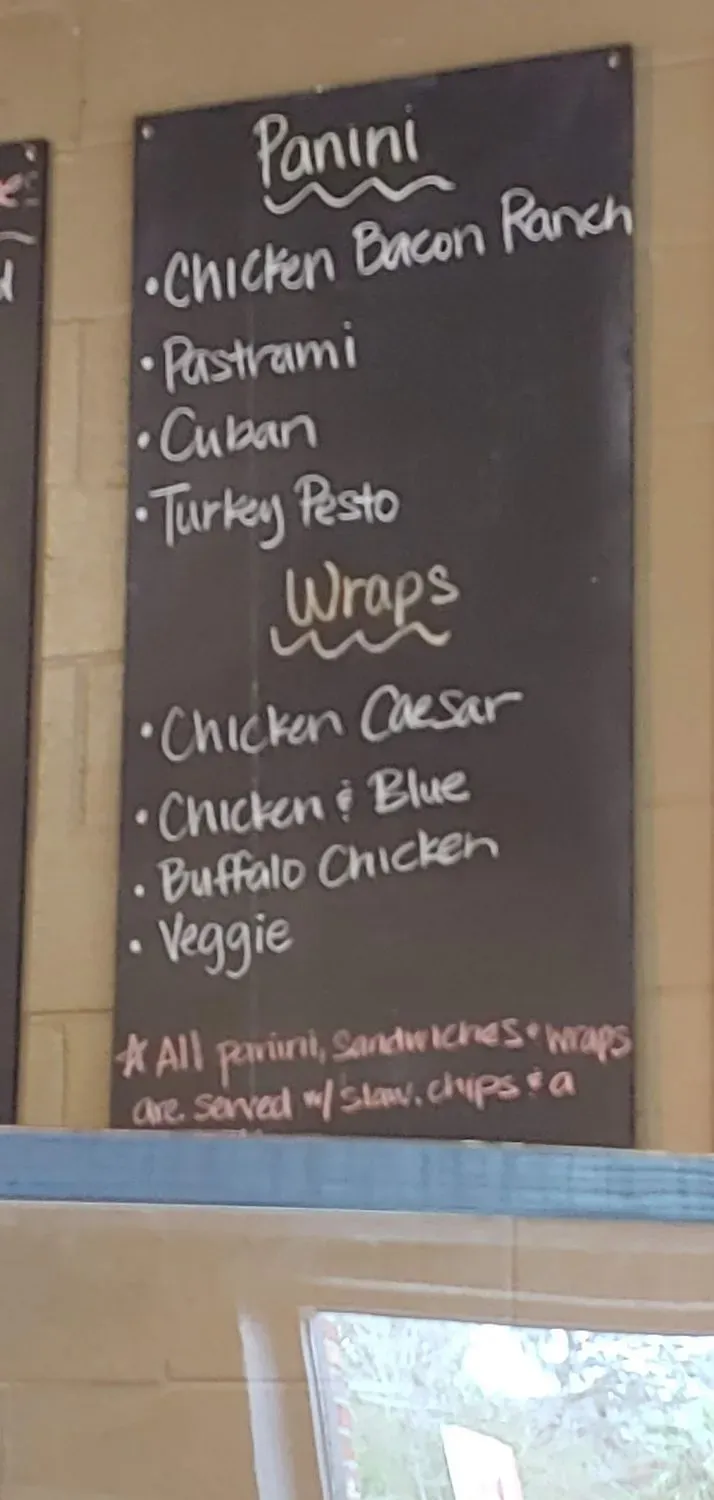 Panini
• Chicken Bacon Ranch
• Pastrami
• Cuban
• Turkey Pesto
Wraps
• Chicken Caesar
• Chicken & Blue
• Buffalo Chicken
• Veggie
☆ All panini, sandwiches & wraps
are served w/ slaw, chips & a